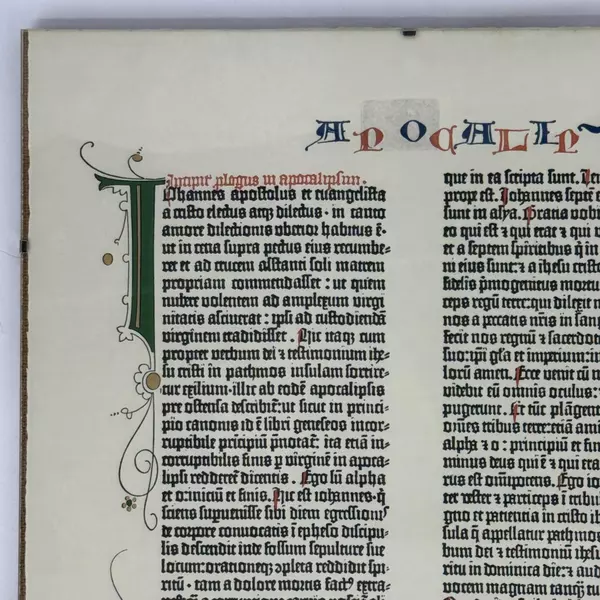 APOCALIP
Incipit ꝓlogus in apocalipsim.
Iohannes apostolus et euangelista
a cristo electus atqꝫ dilectus · in tanto
amore dilectionis uberior habitus ē·
ut in cena supra pectus eius recumbe-
ret et ad crucem astanti soli matrem
propriam commendasset : ut quem
nubere volentem ad amplexum virgi
nitatis asciuerat : ipsi ad custodiendā
virginem tradidisset . Hic itaqꝫ cum
propter verbum dei ⁊ testimonium ihe-
su cristi in pathmos insulam sortire-
tur exilium· illic ab eodē apocalipsis
pre ostensa describit̄: ut sicut in princi-
pio canonis id ē libri geneseos incor-
ruptibile prīcipiū p̄notat̄: ita etiā in-
corruptibilis finis ꝑ virginē in apoca-
lipsi redderet̄ dicentis . Ego sū alpha
et o: iniciū et finis. Hic est iohannes· q̇
sciens supuenisse sibi diem egressiōis
de corpore conuocatis ī epheso discipu-
lis descendit inde fossum sepulture sue
locum: orationeqꝫ ↄpleta reddidit spi-
ritū · tam a dolore mortis fact9 extra-
que in ea scripta sunt.
prope est. Iohannes septē
sunt in asya. Gratia vobi
eo qui est ⁊ qui erat ⁊ qui v
et a septem spiritibus q̇ in
ni eius sunt: ⁊ a ihesu cristo
fidelis p̄mogenitus mortu
ceps regū terre: qui dilexit n
nos a peccatis nr̄is in san
fecit nos regnū ⁊ sacerdot
suo: ipī gl̄a et imperium: in
lorū amen. Ecce venit cū n
videbit eū omnis oculus:
pugerunt. Et tūc plāgent
om̄es tribus terre: etiā ami
alpha ⁊ o : principiū et fin
minus deus qui ē ⁊ qui era
rus est om̄ipotens. Ego io
ter vester ⁊ particeps ī tribu
gno et patientia in cristo ih
sula q̄ appellatur pathmos
bum dei ⁊ testimoniū ihesu
ritu in dominica die: ⁊ aud
vocem magnam tanq̄ tu